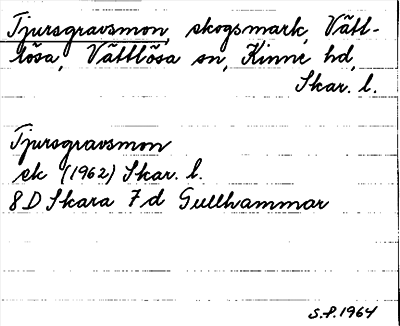 Tjursgravsmon, skogsmark, Vätt-
lösa, Vättlösa sn, Kinne hd,
Skar. l.
Tjursgravsmon
ek (1962) Skar. l.
8D Skara 7d Gullhammar
S.P. 1964